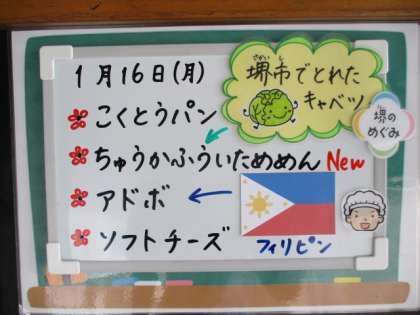 1月16日(月)
こくとうパン
ちゅうかふういためめん New
アドボ
ソフトチーズ
フィリピン
さかいし
堺市でとれた
キャベツ
堺の
めぐみ